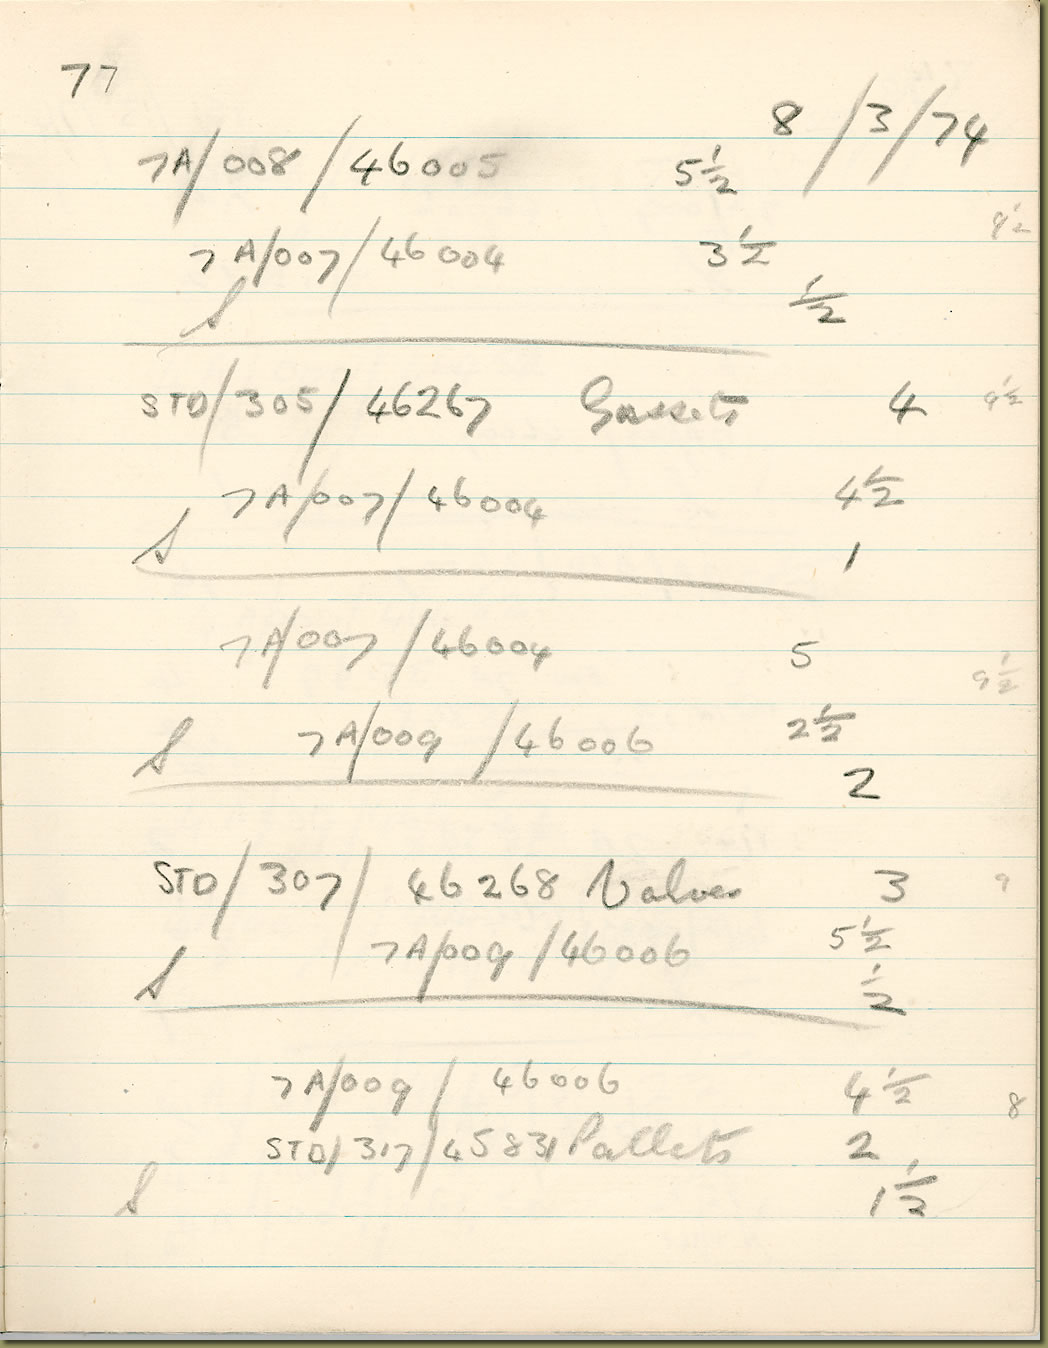 77
8/3/74
7A/008/46005 5½
9½
7A/007/46004 3½
S ½
STD/305/46267 Gussets 4 9½
7A/007/46004 4½
S 1
7A/007/46004 5
9½
S 7A/009/46006 2½
2
STD/307/46268 Valves 3 9
7A/009/46006 5½
S ½
7A/009/46006 4½ 8
STD/317/45831 Pallets 2
S 1½